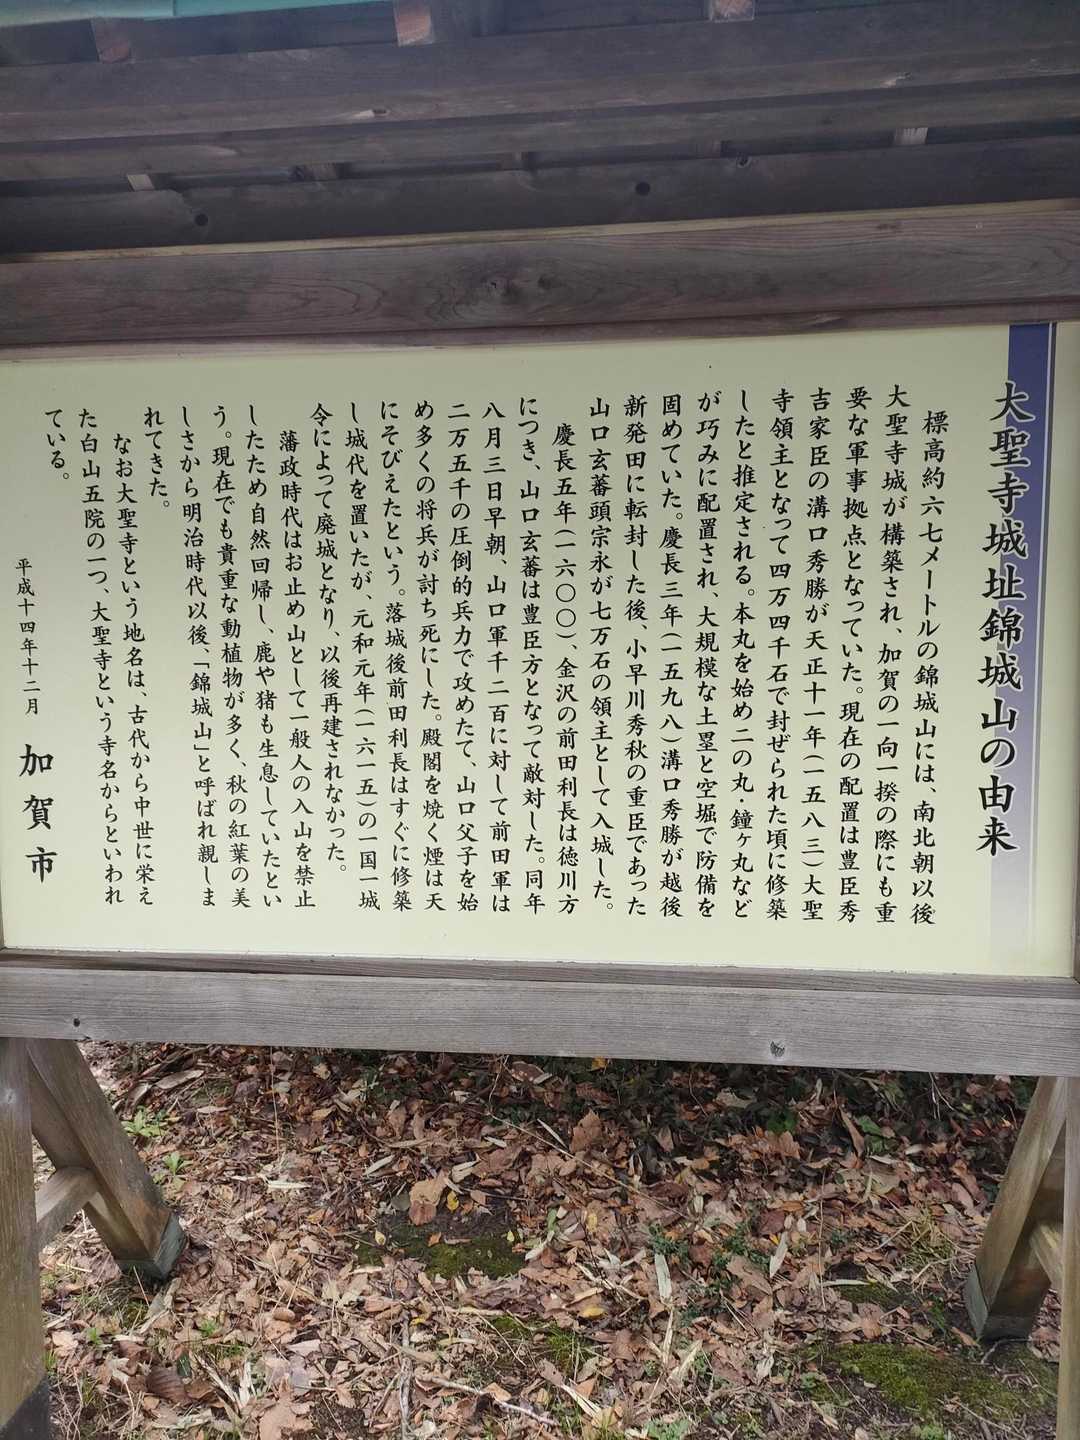 大聖寺城址錦城山の由来
標高約六七メートルの錦城山には、南北朝以後
大聖寺城が構築され、加賀の一向一揆の際にも重
要な軍事拠点となっていた。現在の配置は豊臣秀
吉家臣の溝口秀勝が天正十一年(一五八三)大聖
寺領主となって四万四千石で封ぜられた頃に修築
したと推定される。本丸を始め二の丸・鐘ヶ丸など
が巧みに配置され、大規模な土塁と空堀で防備を
固めていた。慶長三年(一五九八)溝口秀勝が越後
新発田に転封した後、小早川秀秋の重臣であった
山口玄蕃頭宗永が七万石の領主として入城した。
慶長五年(一六〇〇)、金沢の前田利長は徳川方
につき、山口玄蕃は豊臣方となって敵対した。同年
八月三日早朝、山口軍千二百に対して前田軍は
二万五千の圧倒的兵力で攻めたて、山口父子を始
め多くの将兵が討ち死にした。殿閣を焼く煙は天
にそびえたという。落城後前田利長はすぐに修築
し城代を置いたが、元和元年(一六一五)の一国一城
令によって廃城となり、以後再建されなかった。
藩政時代はお止め山として一般人の入山を禁止
したため自然回帰し、鹿や猪も生息していたとい
う。現在でも貴重な動植物が多く、秋の紅葉の美
しさから明治時代以後、「錦城山」と呼ばれ親しま
れてきた。
なお大聖寺という地名は、古代から中世に栄え
た白山五院の一つ、大聖寺という寺名からといわれ
ている。
平成十四年十二月 加賀市